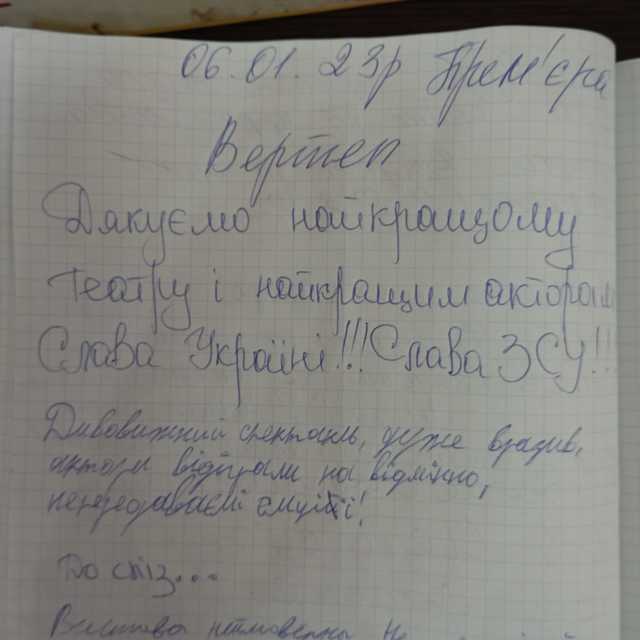 06.01.23р Прем'єра
Вертеп
Дякуємо найкращому
театру і найкращим акторам
Слава Україні!!! Слава ЗСУ!!!
Дивовижний спектакль, дуже вразив,
актори відіграли на відмінно,
непередаваємі емоції!
До сліз...
Вистава